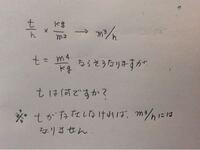 t/h × kg/m² → m³/h
t = m⁴/kg ならそうなりますが
tは何ですか?
tがなだしなければ、m³/hには
なりません